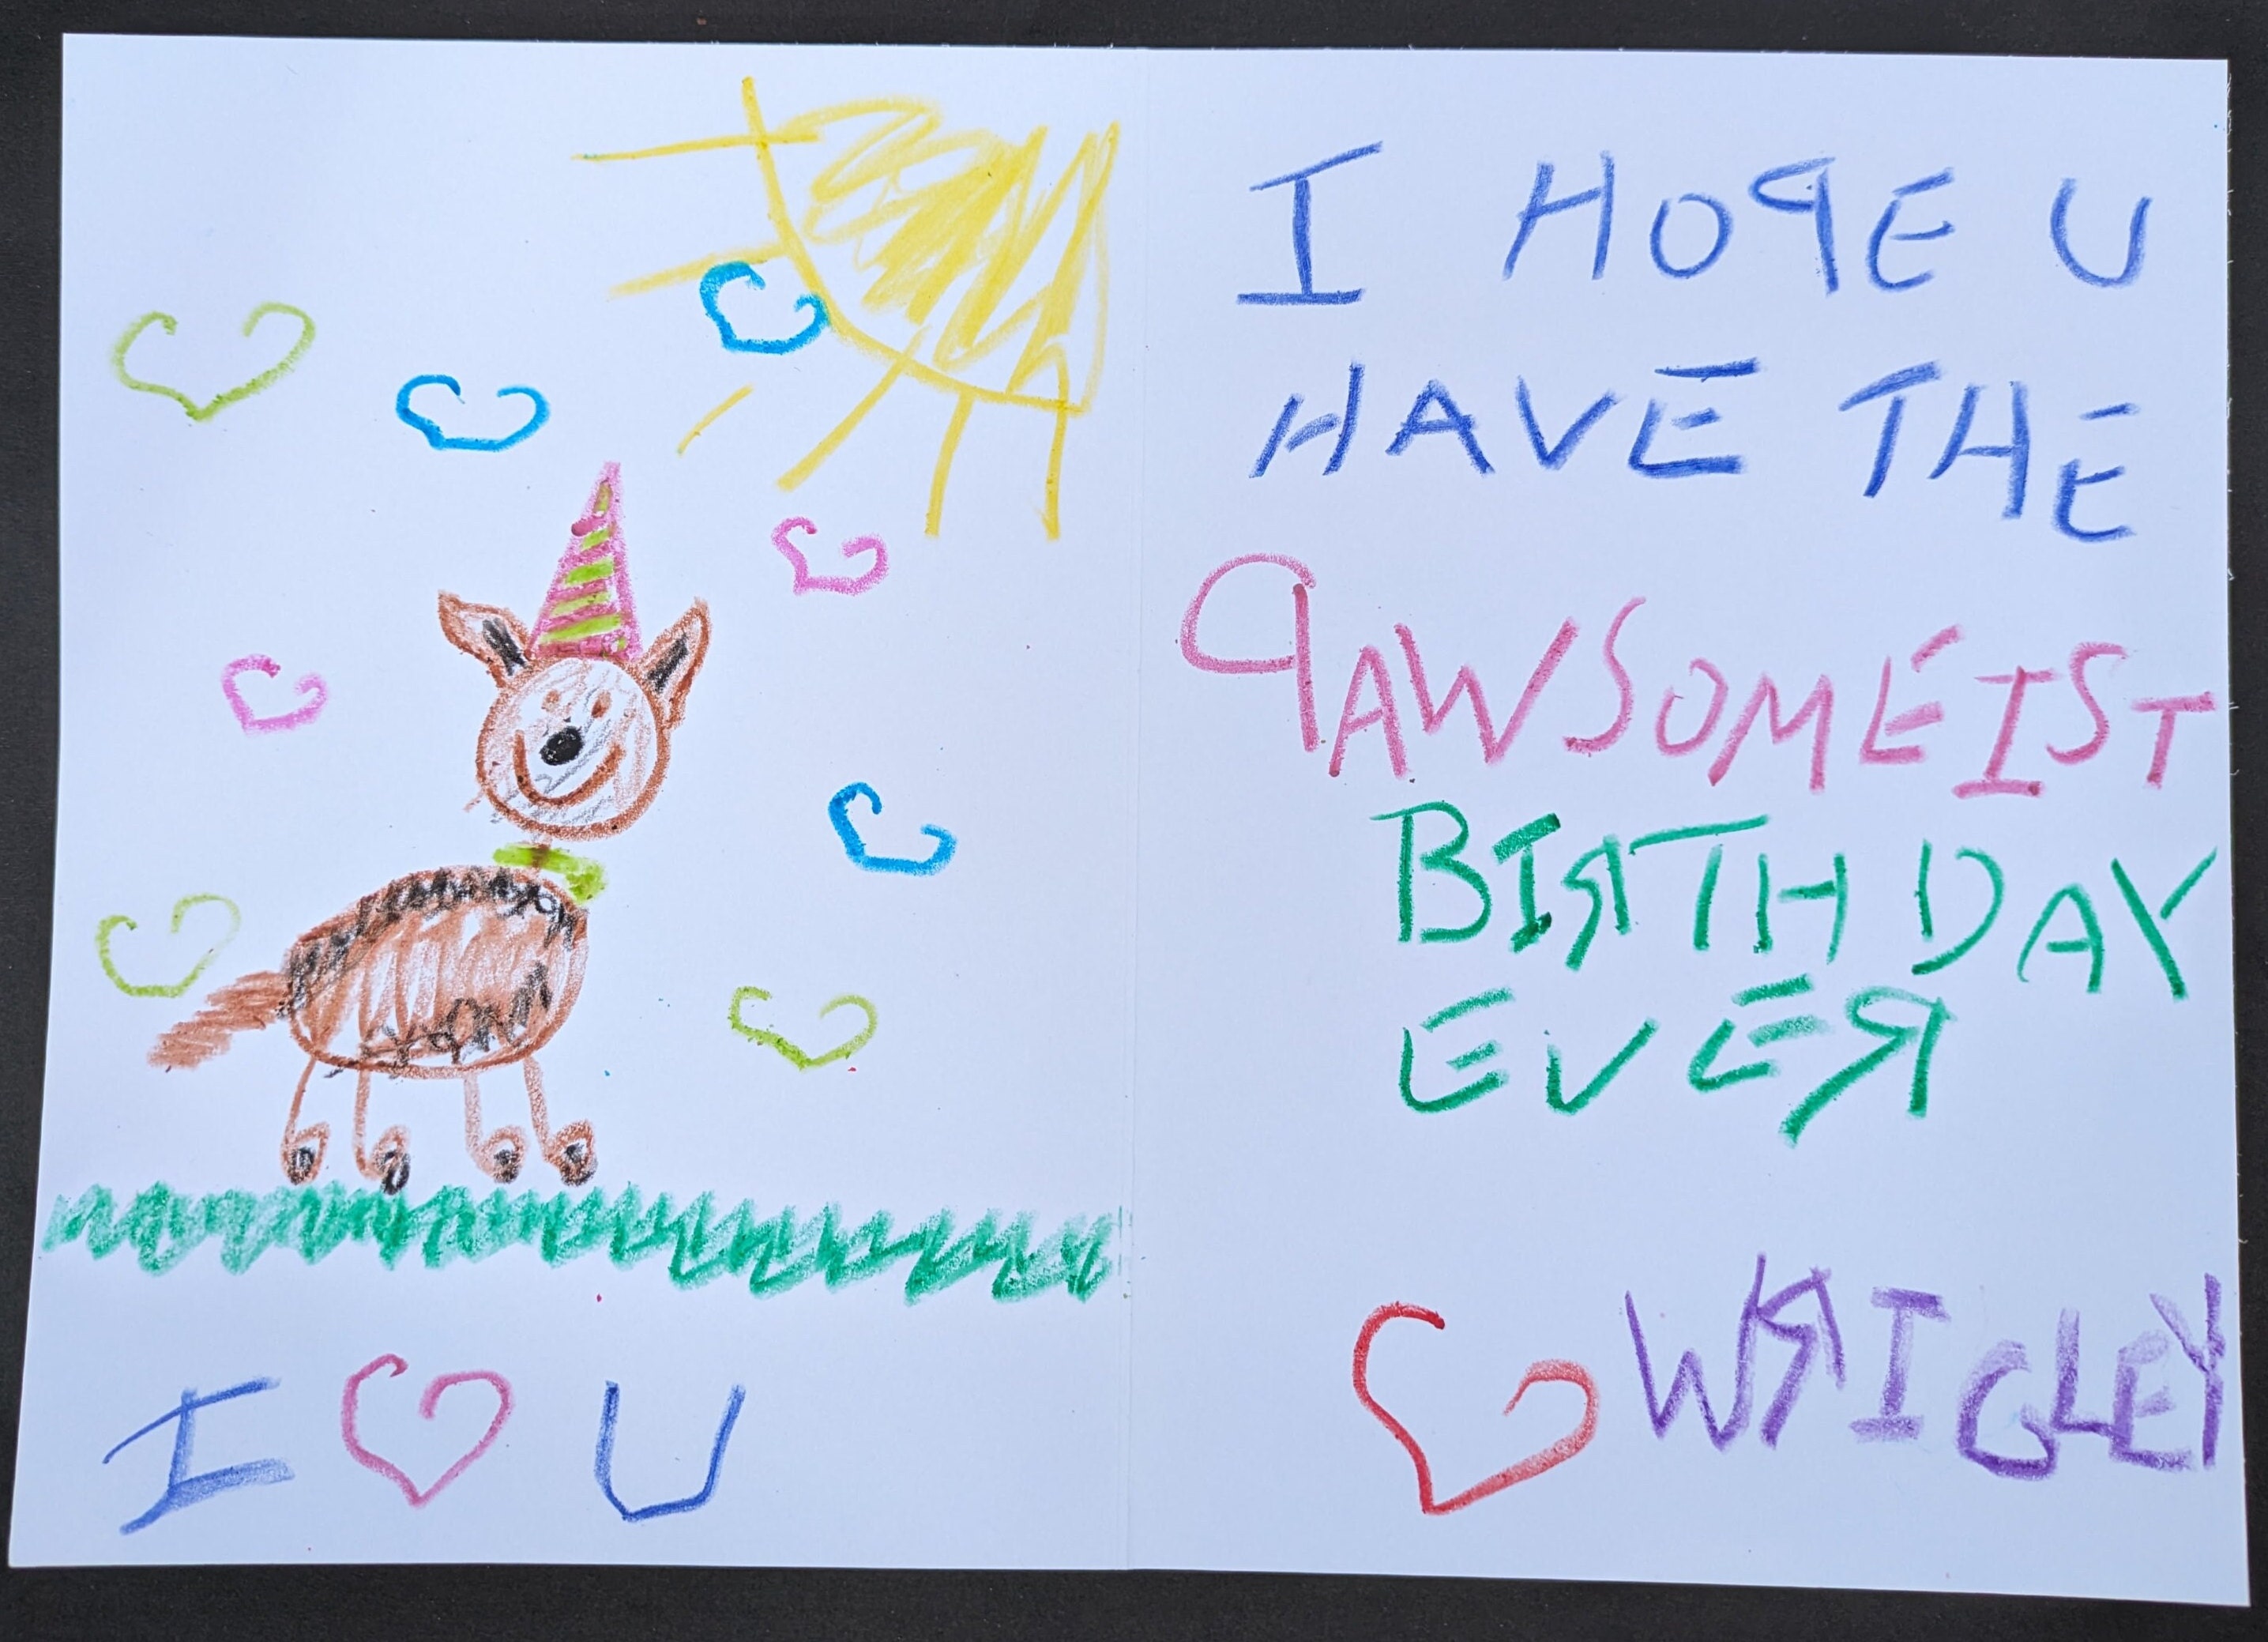 I HOPE U
HAVE THE
PAWSOMEIST
BIRTHDAY
EVER
♥ WRIGLEY
I ♥ U